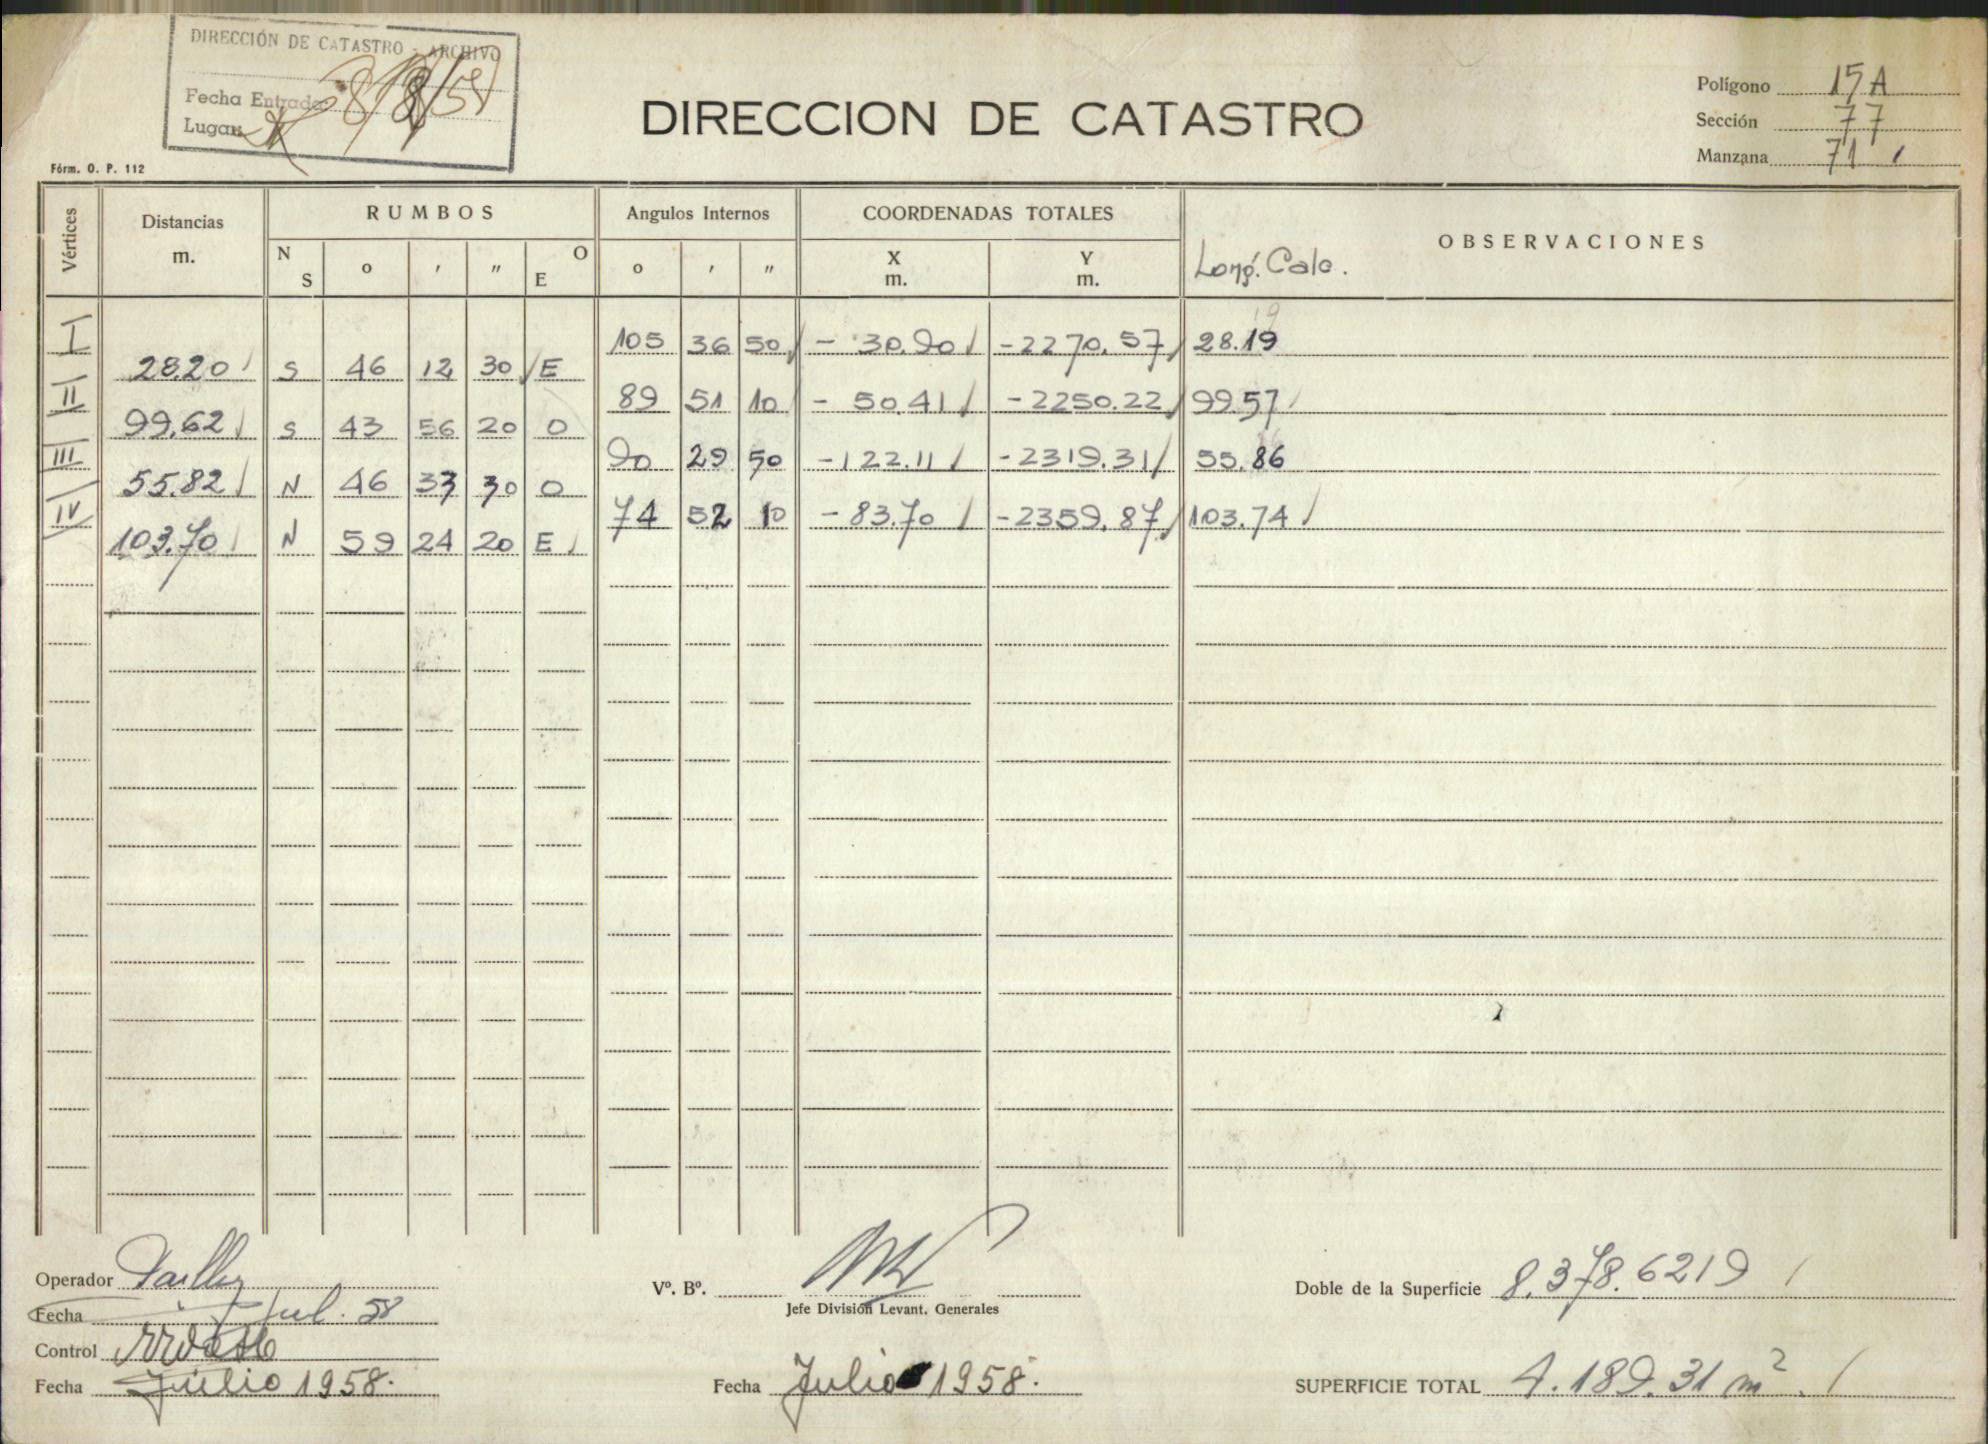 DIRECCIÓN DE CATASTRO - ARCHIVO
Fecha Entrada 8/8/58
Lugar
Fórm. O. P. 112
DIRECCION DE CATASTRO
Polígono 15A
Sección 77
Manzana 71
Vértices Distancias m. RUMBOS Angulos Internos COORDENADAS TOTALES OBSERVACIONES
N S o ' " O E o ' " X m. Y m. Long. Calc.
I 105 36 50 - 30.90 -2270.57 28.19
28.20 S 46 12 30 E
II 89 51 10 - 50.41 -2250.22 99.57
99.62 S 43 56 20 O
III 90 29 50 -122.11 -2319.31 55.86
55.82 N 46 33 30 O
IV 74 52 10 -83.70 -2359.87 103.74
103.70 N 59 24 20 E
Operador
Fecha Jul. 58
Control
Fecha Julio 1958.
Vº. Bº.
Jefe División Levant. Generales
Fecha Julio 1958.
Doble de la Superficie 8.378.6219
SUPERFICIE TOTAL 4.189.31 m².